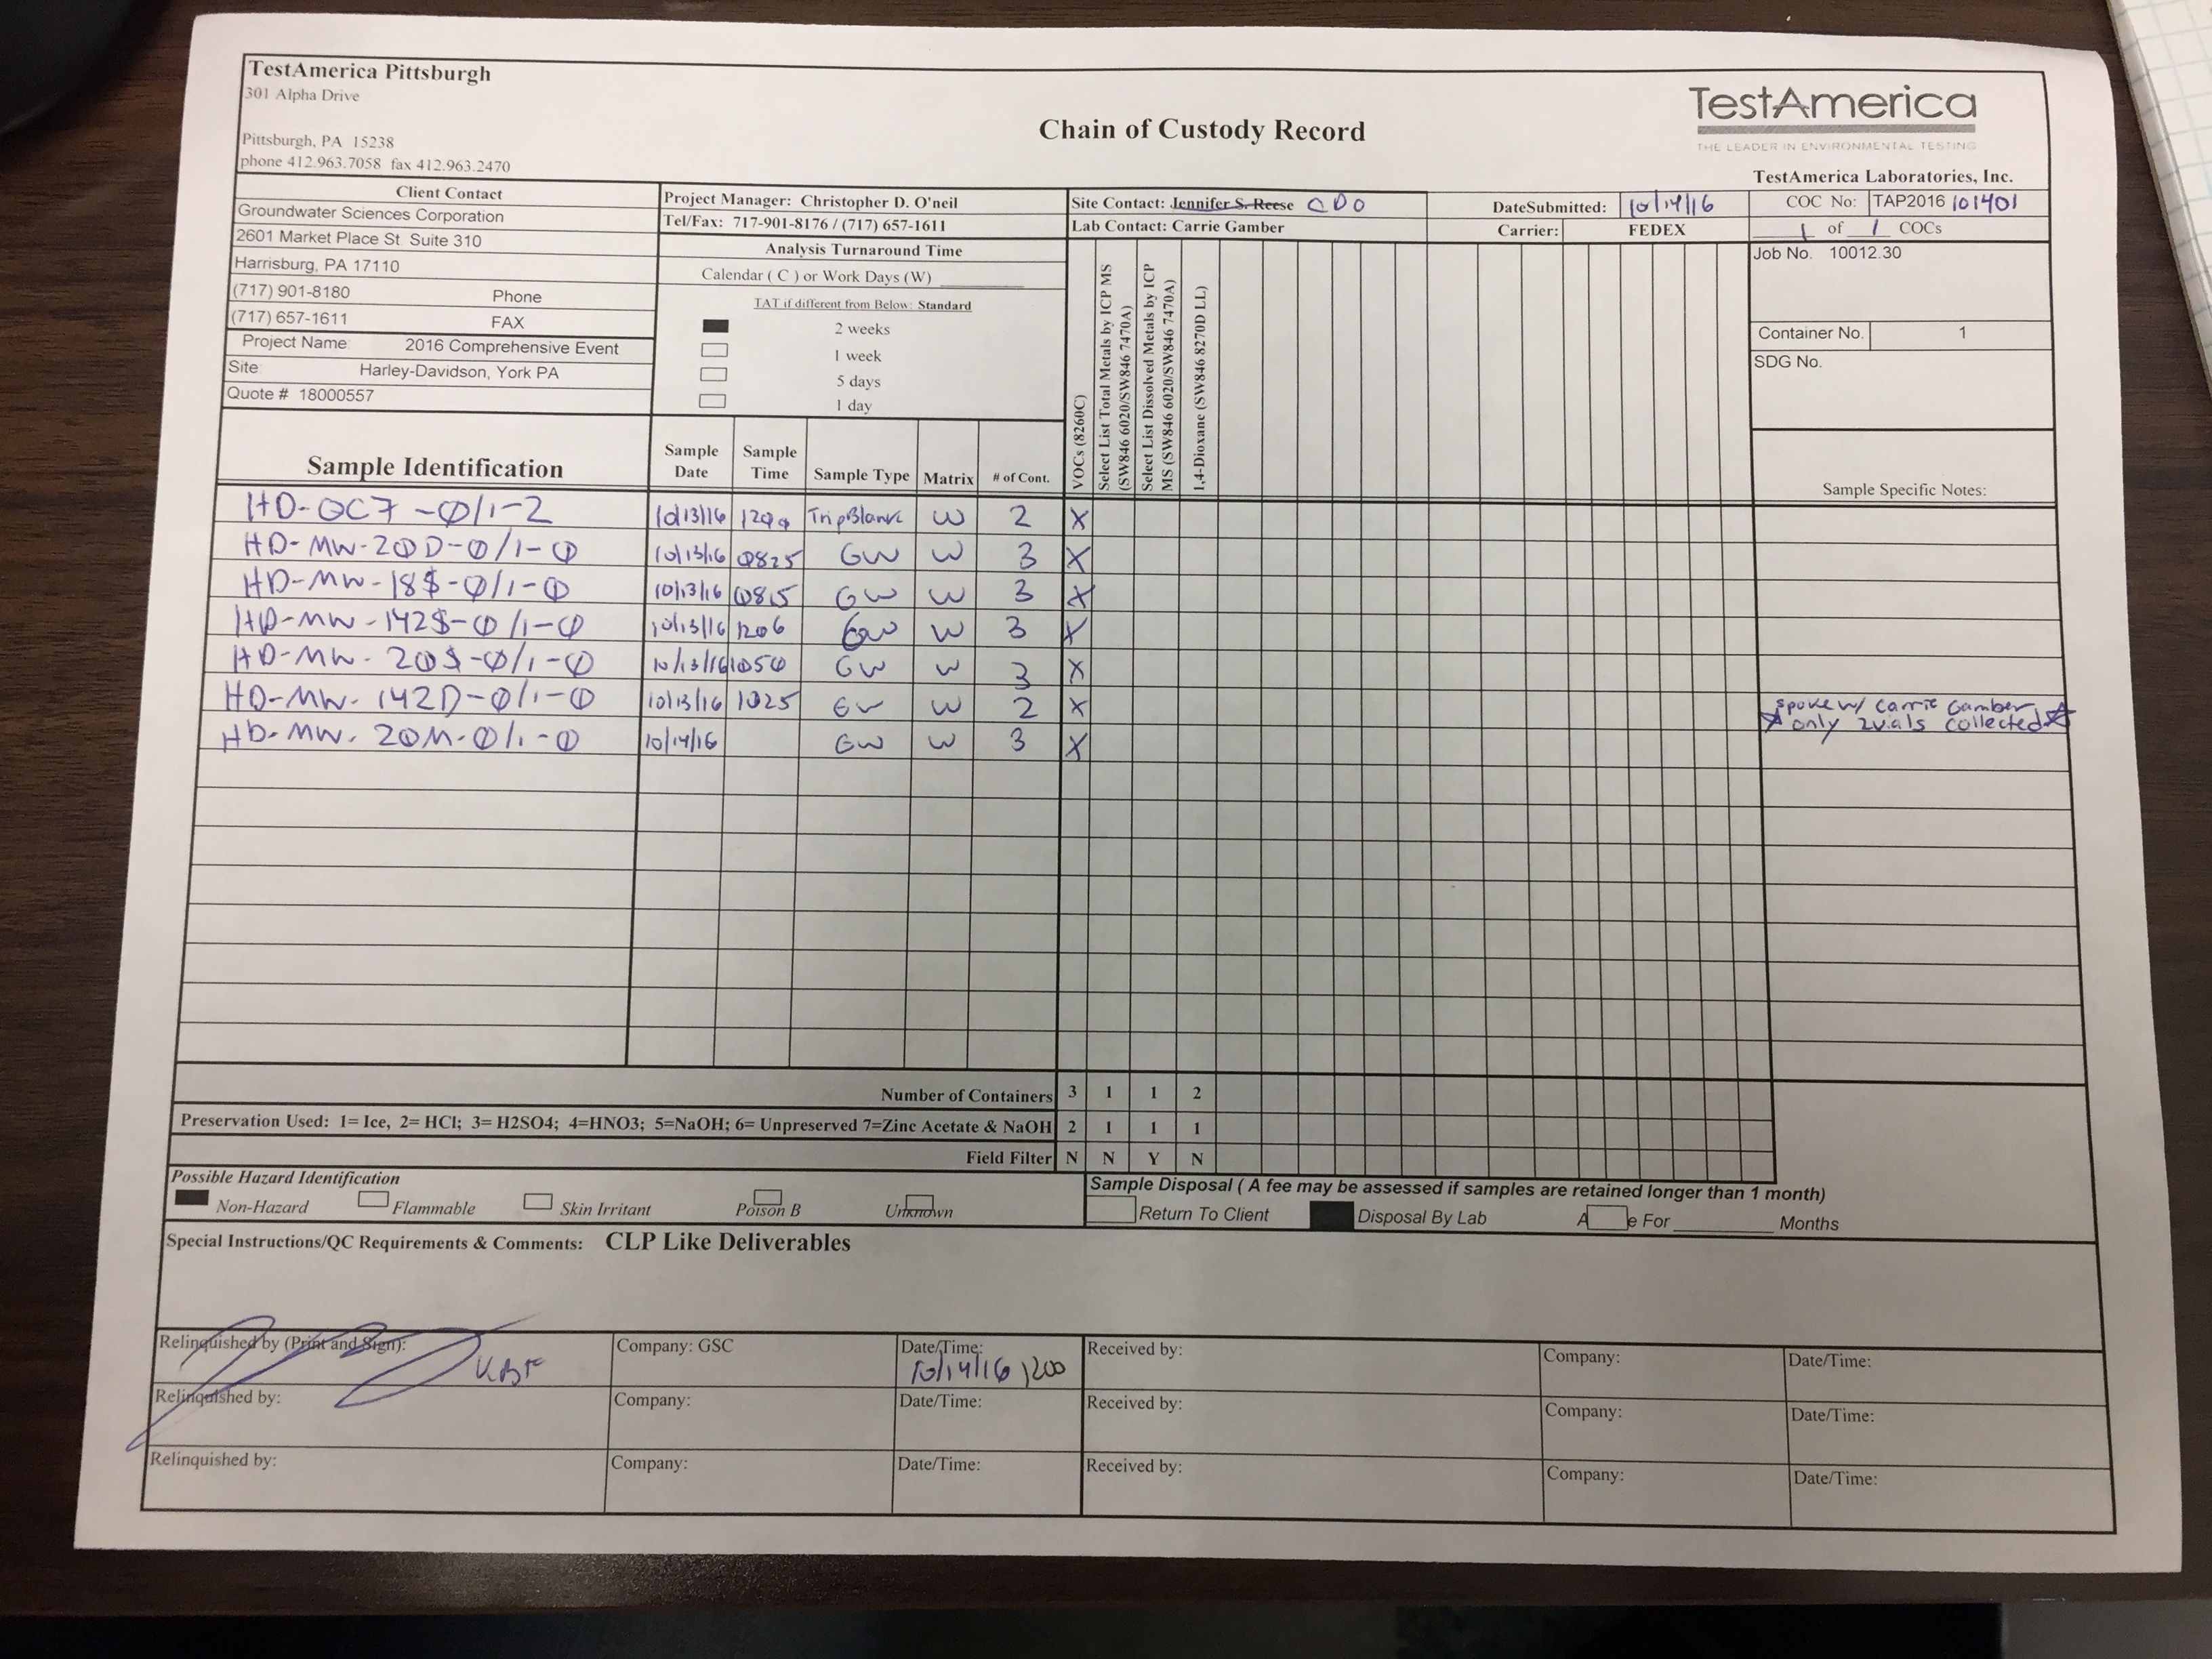 TestAmerica Pittsburgh
301 Alpha Drive
Pittsburgh, PA 15238
phone 412.963.7058 fax 412.963.2470
Chain of Custody Record
TestAmerica
THE LEADER IN ENVIRONMENTAL TESTING
TestAmerica Laboratories, Inc.
Client Contact
Groundwater Sciences Corporation
2601 Market Place St. Suite 310
Harrisburg, PA 17110
(717) 901-8180 Phone
(717) 657-1611 FAX
Project Name: 2016 Comprehensive Event
Site: Harley-Davidson, York PA
Quote # 18000557
Project Manager: Christopher D. O'neil
Tel/Fax: 717-901-8176 / (717) 657-1611
Analysis Turnaround Time
Calendar ( C ) or Work Days (W)
TAT if different from Below: Standard
2 weeks
1 week
5 days
1 day
Site Contact: Jennifer S. Reese CDO
Lab Contact: Carrie Gamber
DateSubmitted: 10/14/16
Carrier: FEDEX
COC No: TAP2016 101401
1 of 1 COCs
Job No. 10012.30
Container No. 1
SDG No.
Sample Identification
Sample Date
Sample Time
Sample Type
Matrix
# of Cont.
VOCs (8260C)
Select List Total Metals by ICP MS
(SW846 6020/SW846 7470A)
Select List Dissolved Metals by ICP
MS (SW846 6020/SW846 7470A)
1,4-Dioxane (SW846 8270D LL)
Sample Specific Notes:
HD-QC7-0/1-2 10/13/16 1200 TripBlank W 2 X
HD-MW-20D-0/1-0 10/13/16 0825 GW W 3 X
HD-MW-18S-0/1-0 10/13/16 0815 GW W 3 X
HD-MW-142S-0/1-0 10/13/16 1206 GW W 3 X
HD-MW-20S-0/1-0 10/13/16 1050 GW W 3 X
HD-MW-142D-0/1-0 10/13/16 1025 GW W 2 X spoke w/ Carrie Gamber
only 2vials collected
HD-MW-20M-0/1-0 10/14/16 GW W 3 X
Number of Containers 3 1 1 2
Preservation Used: 1= Ice, 2= HCl; 3= H2SO4; 4=HNO3; 5=NaOH; 6= Unpreserved 7=Zinc Acetate & NaOH 2 1 1 1
Field Filter N N Y N
Possible Hazard Identification
Non-Hazard Flammable Skin Irritant Poison B Unknown
Sample Disposal ( A fee may be assessed if samples are retained longer than 1 month)
Return To Client Disposal By Lab A e For Months
Special Instructions/QC Requirements & Comments: CLP Like Deliverables
Relinquished by (Print and Sign): Company: GSC Date/Time: 10/14/16 1200 Received by: Company: Date/Time:
Relinquished by: Company: Date/Time: Received by: Company: Date/Time:
Relinquished by: Company: Date/Time: Received by: Company: Date/Time: